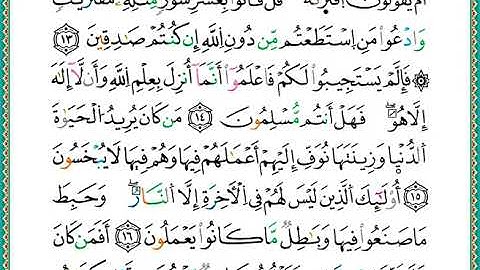 أَمْ يَقُولُونَ ٱفْتَرَىٰهُ قُلْ فَأْتُوا۟ بِعَشْرِ سُوَرٍ مِّثْلِهِۦ مُفْتَرَيَٰتٍ
وَٱدْعُوا۟ مَنِ ٱسْتَطَعْتُم مِّن دُونِ ٱللَّهِ إِن كُنتُمْ صَٰدِقِينَ ١٣
۞ فَإِلَّمْ يَسْتَجِيبُوا۟ لَكُمْ فَٱعْلَمُوٓا۟ أَنَّمَآ أُنزِلَ بِعِلْمِ ٱللَّهِ وَأَن لَّآ إِلَٰهَ
إِلَّا هُوَۖ فَهَلْ أَنتُم مُّسْلِمُونَ ١٤ مَن كَانَ يُرِيدُ ٱلْحَيَوٰةَ
ٱلدُّنْيَا وَزِينَتَهَا نُوَفِّ إِلَيْهِمْ أَعْمَٰلَهُمْ فِيهَا وَهُمْ فِيهَا لَا يُبْخَسُونَ
١٥ أُو۟لَٰٓئِكَ ٱلَّذِينَ لَيْسَ لَهُمْ فِى ٱلْءَاخِرَةِ إِلَّا ٱلنَّارُۖ وَحَبِطَ
مَا صَنَعُوا۟ فِيهَا وَبَٰطِلٌ مَّا كَانُوا۟ يَعْمَلُونَ ١٦ أَفَمَن كَانَ